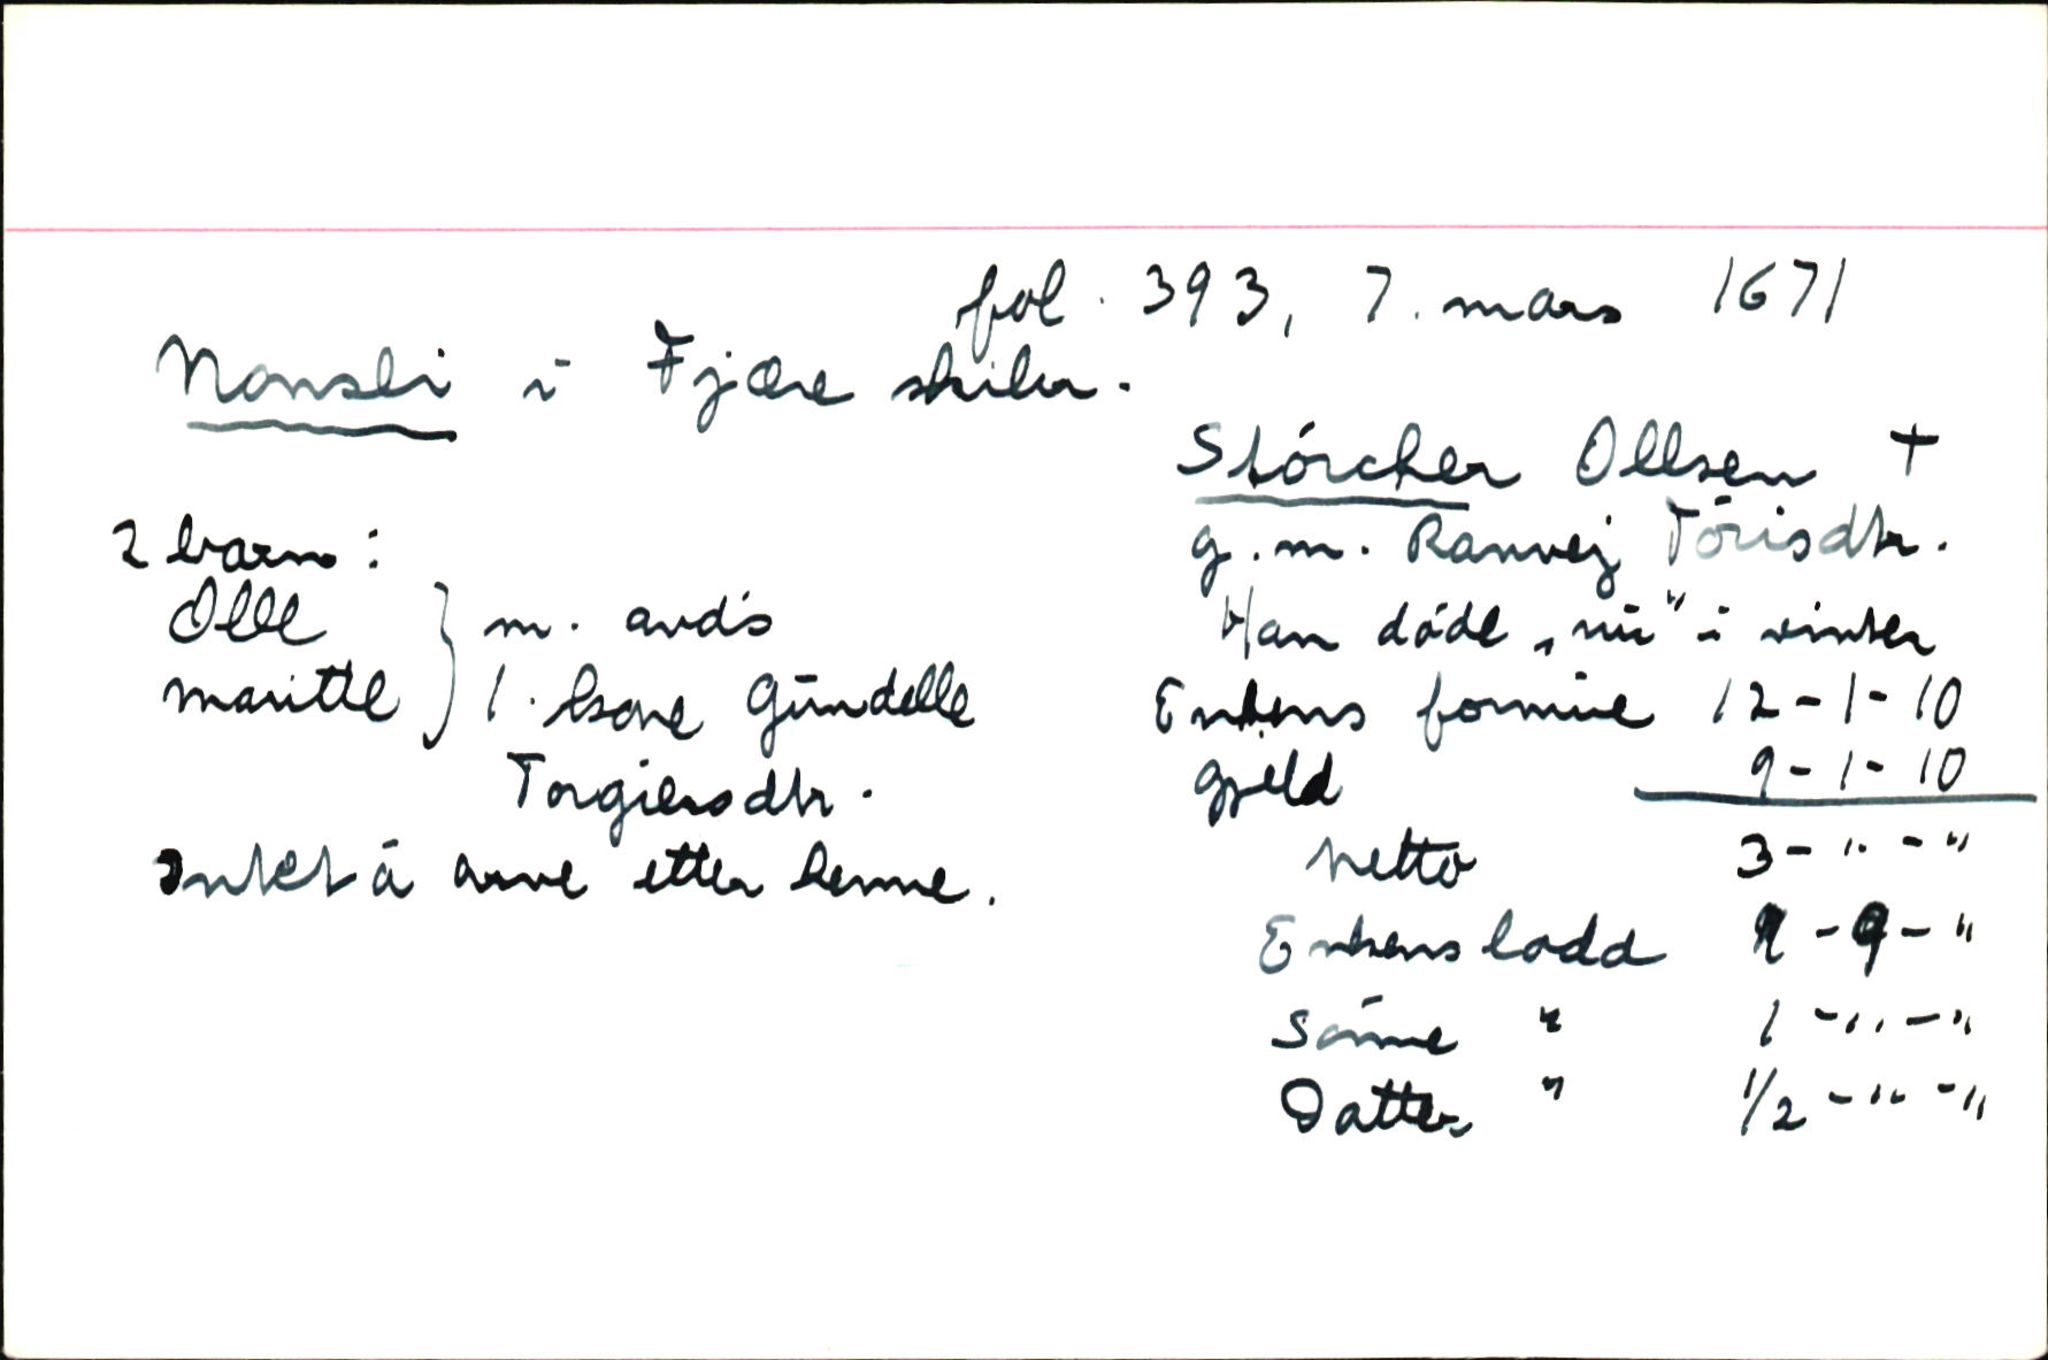 fol. 393, 7. mars 1671
Nonsli i Fjære skiber.
Stórcher Ollsen +
g.m. Ranvej Tórisdtr.
Han døde „nu" i vinter
Enkens formue 12-1-10
Gjeld 9-1-10
Netto 3-"-"
Enkens lodd -"
Sønne " 1-"-"
Datter " 1/2-"-"
2 barn:
Olle
Maritte } m. avdøs
1. kone Gúndelle
Torgiersdtr.
Intet å arve etter henne.